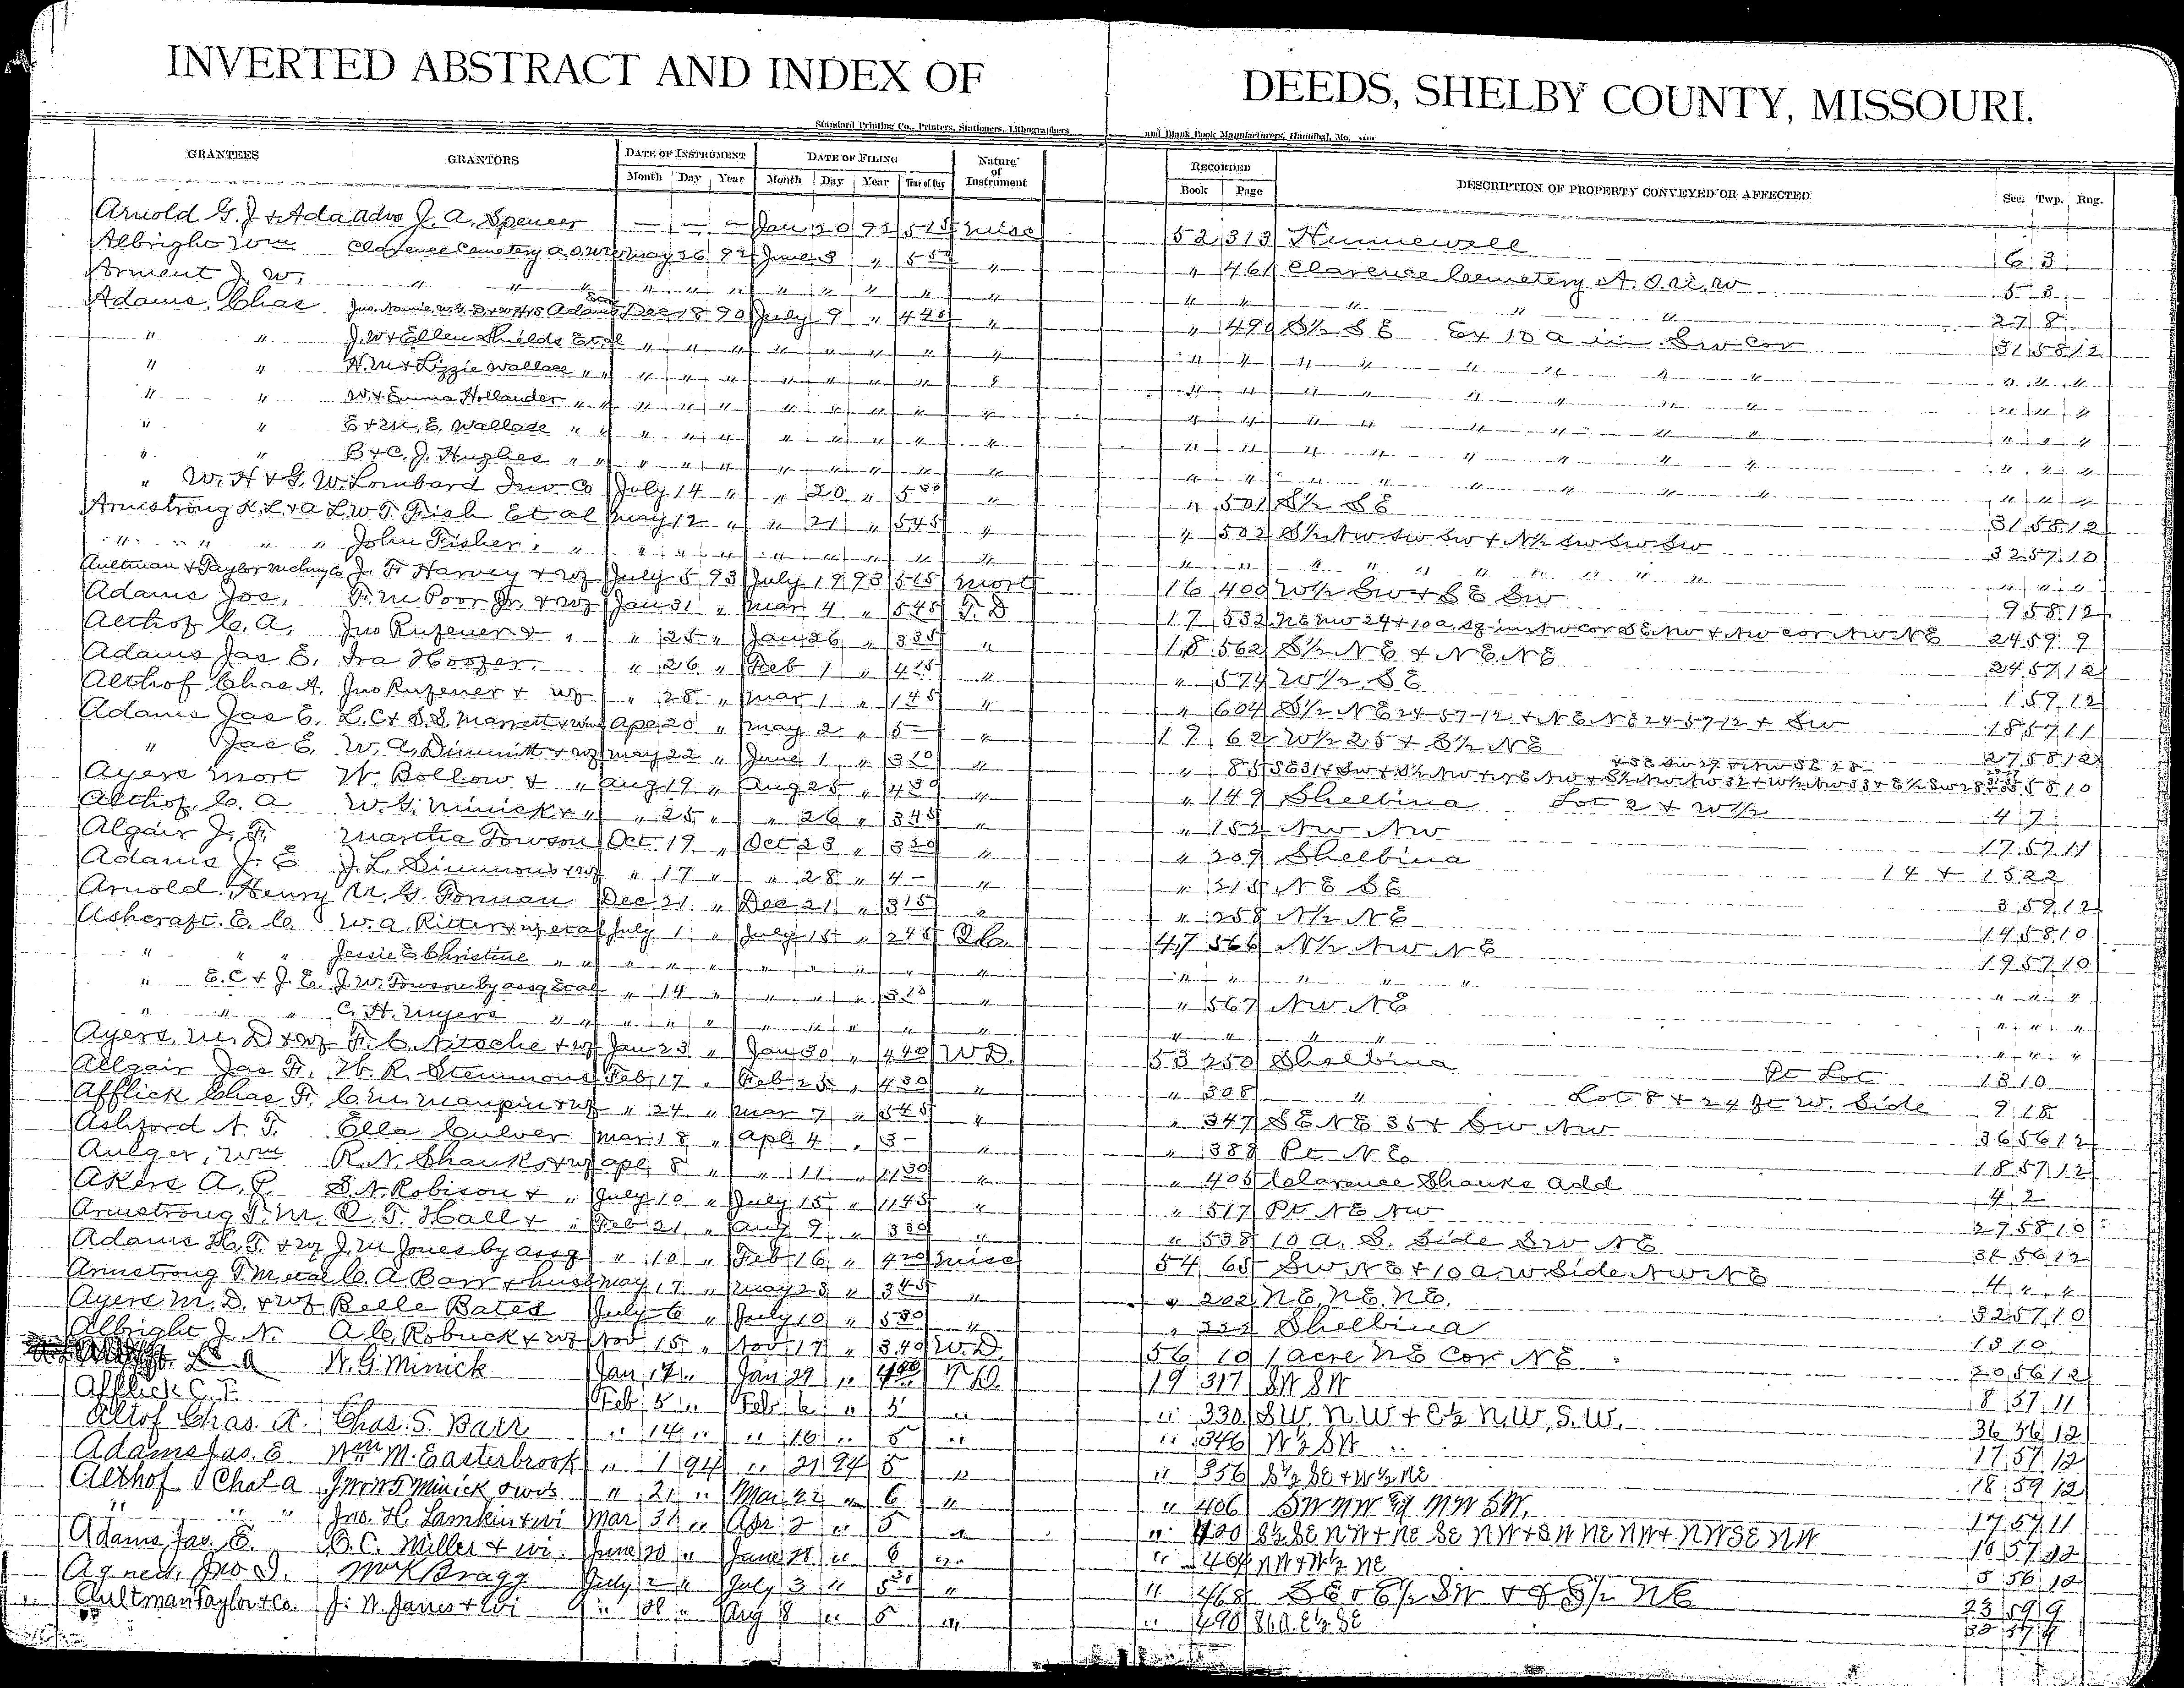 INVERTED ABSTRACT AND INDEX OF DEEDS, SHELBY COUNTY, MISSOURI.
Standard Printing Co., Printers, Stationers, Lithographers and Blank Book Manufacturers, Hannibal, Mo.
GRANTEES GRANTORS DATE OF INSTRUMENT DATE OF FILING Nature of Instrument RECORDED DESCRIPTION OF PROPERTY CONVEYED OR AFFECTED Sec. Twp. Rng.
Month Day Year Month Day Year Time of Day Book Page
Arnold G. J & Ada adv J. A. Spencer — — — Jan 20 92 5 15 Misc 52 313 Hunnewell 6 3
Albright Wm Clarence Cemetery A.O.U.W May 26 92 June 3 " 5 50 " " 461 Clarence Cemetery A. O. U. W 5 3
Arment J. W. " " " " " " " " " " " " " " " 27 8
Adams, Chas Jno. Nannie Adams Dec 18 90 July 9 " 4 40 " " 490 S½ S E Ex 10 a in Sw Cor 31 58 12
" " J. W & Ellen Shields Et al " " " " " " " " " " " " " " "
" " H. M & Lizzie Wallace " " " " " " " " " " " " " " " "
" " W. & Emma Hollander " " " " " " " " " " " " " " " "
" " E & M. E. Wallace " " " " " " " " " " " " " " " "
" " B & C. J. Hughes " " " " " " " " " " " " " " " "
" W. H & G. W. Lombard Inv. Co July 14 " " 20 " 5 30 " " 501 S½ S E 31 58 12
Armstrong K. L. & A L. W. T. Fish Et al May 12 " " 21 " 5 45 " " 502 S½ Nw Sw Sw & N½ Sw Sw Sw 32 57 10
" " " " John Fisher " " " " " " " " " " " " " " " "
Aultman & Taylor Mchny Co J. F. Harvey & wf July 5 93 July 19 93 5 15 Mort 16 400 W½ Sw & S E Sw 9 58 12
Adams Jos. F. M Poor Jr. & wf Jan 31 " Mar 4 " 5 45 T. D 17 532 NE NW 24 & 10 a. sq. in Nw cor S E Nw & Nw cor Nw N E 24 59 9
Althof C. A. Jno Rufener & " " 25 " Jan 26 " 3 35 " 18 562 S½ N E & N E N E 24 57 12
Adams Jas E. Ira Hoofer " 26 " Feb 1 " 4 15 " " 574 W½ S E 1 59 12
Althof Chas A. Jno Rufener & wf " 28 " Mar 1 " 1 45 " " 604 S½ N E 24-57-12 & N E N E 24-57-12 & Sw 18 57 11
Adams Jas E. L. C & S. S. Marrett & wives Apl 20 " May 2 " 5 — " 19 62 W½ 25 & S½ N E 27 58 12
" Jas E. W. A. Dimmitt & wf May 22 " June 1 " 3 20 " " 85 58 10
Ayers Mort W. Bollow & " Aug 19 " Aug 25 " 4 30 " " 149 Shelbina Lot 2 & W½ 4 7
Althof C. A W. G. Minick & " " 25 " " 26 " 3 45 " " 152 Nw Nw 17 57 11
Algair J. F. Martha Towson Oct 19 " Oct 23 " 3 20 " " 209 Shelbina 14 & 15 22
Adams J. E J. L. Simmons & wf " 17 " " 28 " 4 — " " 215 N E S E 3 59 12
Arnold Henry M. G. Forman Dec 21 " Dec 21 " 3 15 " " 258 N½ N E 14 58 10
Ashcraft E. C. W. A. Ritter & wf et al July 1 " July 15 " 2 45 Q. C. 47 566 N½ Nw N E 19 57 10
" " " Jessie E Christine " " " " " " " " " " " " " " " "
" E. C & J. E. J. W. Towson by assg Et al " 14 " " " " 3 10 " " 567 Nw N E " " "
" " " C. H. Myers " " " " " " " " " " " " " " " "
Ayers, M. D & wf F. C. Nitsche & wf Jan 23 " Jan 30 " 4 40 W D. 53 250 Shelbina Pt Lot 13 10
Allgair Jas F. H. R. Stemmons Feb 17 " Feb 25 " 4 30 " " 308 " Lot 8 & 24 ft W. Side 9 18
Afflick Chas F. C. M. Maupin & wf " 24 " Mar 7 " 5 45 " " 347 S E N E 35 & Sw Nw 36 56 12
Ashford N. T. Ella Culver Mar 18 " Apl 4 " 3 — " " 388 Pt N E 18 57 12
Aulger, Wm R. N. Shanks & wf Apl 8 " " 11 " 11 30 " " 405 Clarence Shanks Add 4 2
Akers A. P. S. N. Robison & " July 10 " July 15 " 11 45 " " 517 Pt N E Nw 29 58 10
Armstrong T. M. R. T. Hall & " Feb 21 " Aug 9 " 3 30 " " 538 10 a. S. Side Sw N E 34 56 12
Adams H. T. & wf J. M Jones by assg " 10 " Feb 16 " 4 20 Misc 54 65 Sw N E & 10 a. W Side Nw N E 4 " "
Armstrong T. M. et al C. A Barr & husb May 17 " May 23 " 3 45 " " 202 N E. N E. N E. 32 57 10
Ayers M. D. & wf Belle Bates July 6 " July 10 " 5 30 " " 222 Shelbina 13 10
Albright J. N. A C. Robuck & wf Nov 15 " Nov 17 " 3 40 W. D. 56 10 1 acre N E Cor N E 20 56 12
W. G. Minick Jan 17 " Jan 29 " 4 00 T D. 19 317 SW SW 8 57 11
Afflick C. F. Feb 5 " Feb 6 " 5 " " 330 SW. N. W & E½ N. W, S. W. 36 56 12
Altof Chas. A. Chas. S. Barr " 14 " " 16 " 5 " " 346 W½ SW 17 57 12
Adams Jas. E Wm M. Easterbrook " 1 94 " 21 94 5 " " 356 S½ SE & W½ NE 18 59 12
Althof Chas A Minick & wis " 21 " Mar 22 " 6 " " 406 SW NW NW SW. 17 57 11
" " " Jno. H. Lamkin & wi Mar 31 " Apr 2 " 5 " " 420 S½ SE NW & NE SE NW & SW NE NW & NW SE NW 18 57 12
Adams Jas. E. B. C. Miller & wi. June 20 " June 21 " 6 " " 464 NW & W½ NE 5 56 12
Agnew, Jno D. Wm K Bragg July 2 " July 3 " 5 30 " " 468 SE & E½ SW & S½ NE 23 59 9
Aultman Taylor & Co. J. W. Janes & wi " 28 " Aug 8 " 5 " " 490 80 a. E½ SE 32 57 9